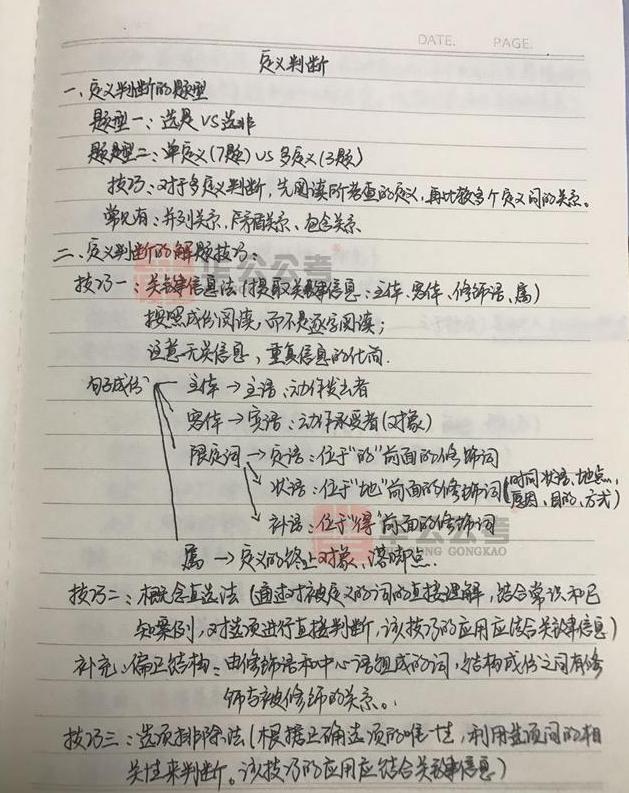 DATE. PAGE.
定义判断
一、定义判断的题型
题型一：选是VS选非
题题型二：单定义(7题) VS 多定义(3题)
技巧：对于多定义判断，先阅读所考查的定义，再比较多个定义间的关系。
常见有：并列关系、矛盾关系、包含关系
二、定义判断的解题技巧：
华公公考
技巧一：关键信息法(提取关键信息：主体、客体、修饰语、属)
按照成份阅读，而不是逐字阅读；
注意无关信息，重复信息的代词.
句子成份 主体→主语：动作发出者
客体→宾语：动作承受者(对象)
限定词→定语：位于"的"前面的修饰词
状语：位于"地"前面的修饰词(时间状语、地点、
原因、目的、方式)
补语：位于"得"前面的修饰词
华公公考
GONGKAO
属→定义的终止对象、落脚点.
技巧二：概念直选法(通过对被定义的词的直接理解，结合常识和已
知案例，对选项进行直接判断，该技巧的应用应结合关键信息)
补充：偏正结构：由修饰语和中心语组成的词，结构成份之间有修
饰与被修饰的关系。
技巧三：选项排除法(根据正确选项的唯一性，利用选项间的相
关性来判断。该技巧的应用应结合关键信息)